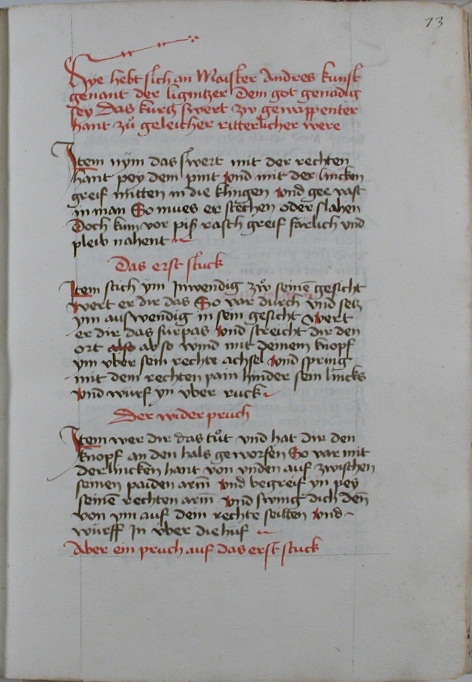 73
Hye hebt sich an Maister Andres kunst
genant der ligniczer Dem got genadig
sey Das kurcz swert zw gewappenter
hant zů geleicher ritterlicher were
Item nÿm das swert mit der rechten
hant pey dem pint vnd mit der lincken
greif mitten in die klingen vnd gee vast
in man So mues er stechen oder slahen
Doch kum vor piß rasch greif färlich vnd
pleib nahent
Das erst stuck
Item stich ym Inwendig zw seinē gesicht
wert er dir das So var durch vnd secz
ym auswendig in sein gesicht wert
er dir das fürpas vnd streicht dir den
ort also abso wind mit deinem knopf
ym vber sein rechte achsel vnd spring
mit dem rechten pain hinder sein lincks
vnd würf yn vber ruck
Der wider pruch
Item wer dir das tůt vnd hat dir den
knopf an den hals geworfen So var mit
der lincken hant von vnden auf zwischen
seinen paiden arm vnd begreif yn pey
seinē rechten arm vnd swing dich deñ
von ym auf dein rechte seitten vnd
würff In vber die huf
Aber ein pruch auf das erst stuck